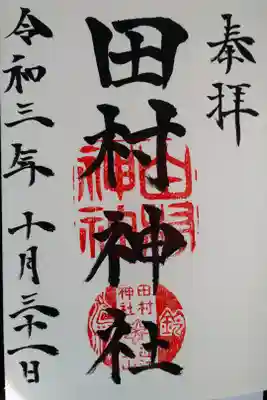 奉拝
田村神社
田村
神社
令和三年十月三十一日